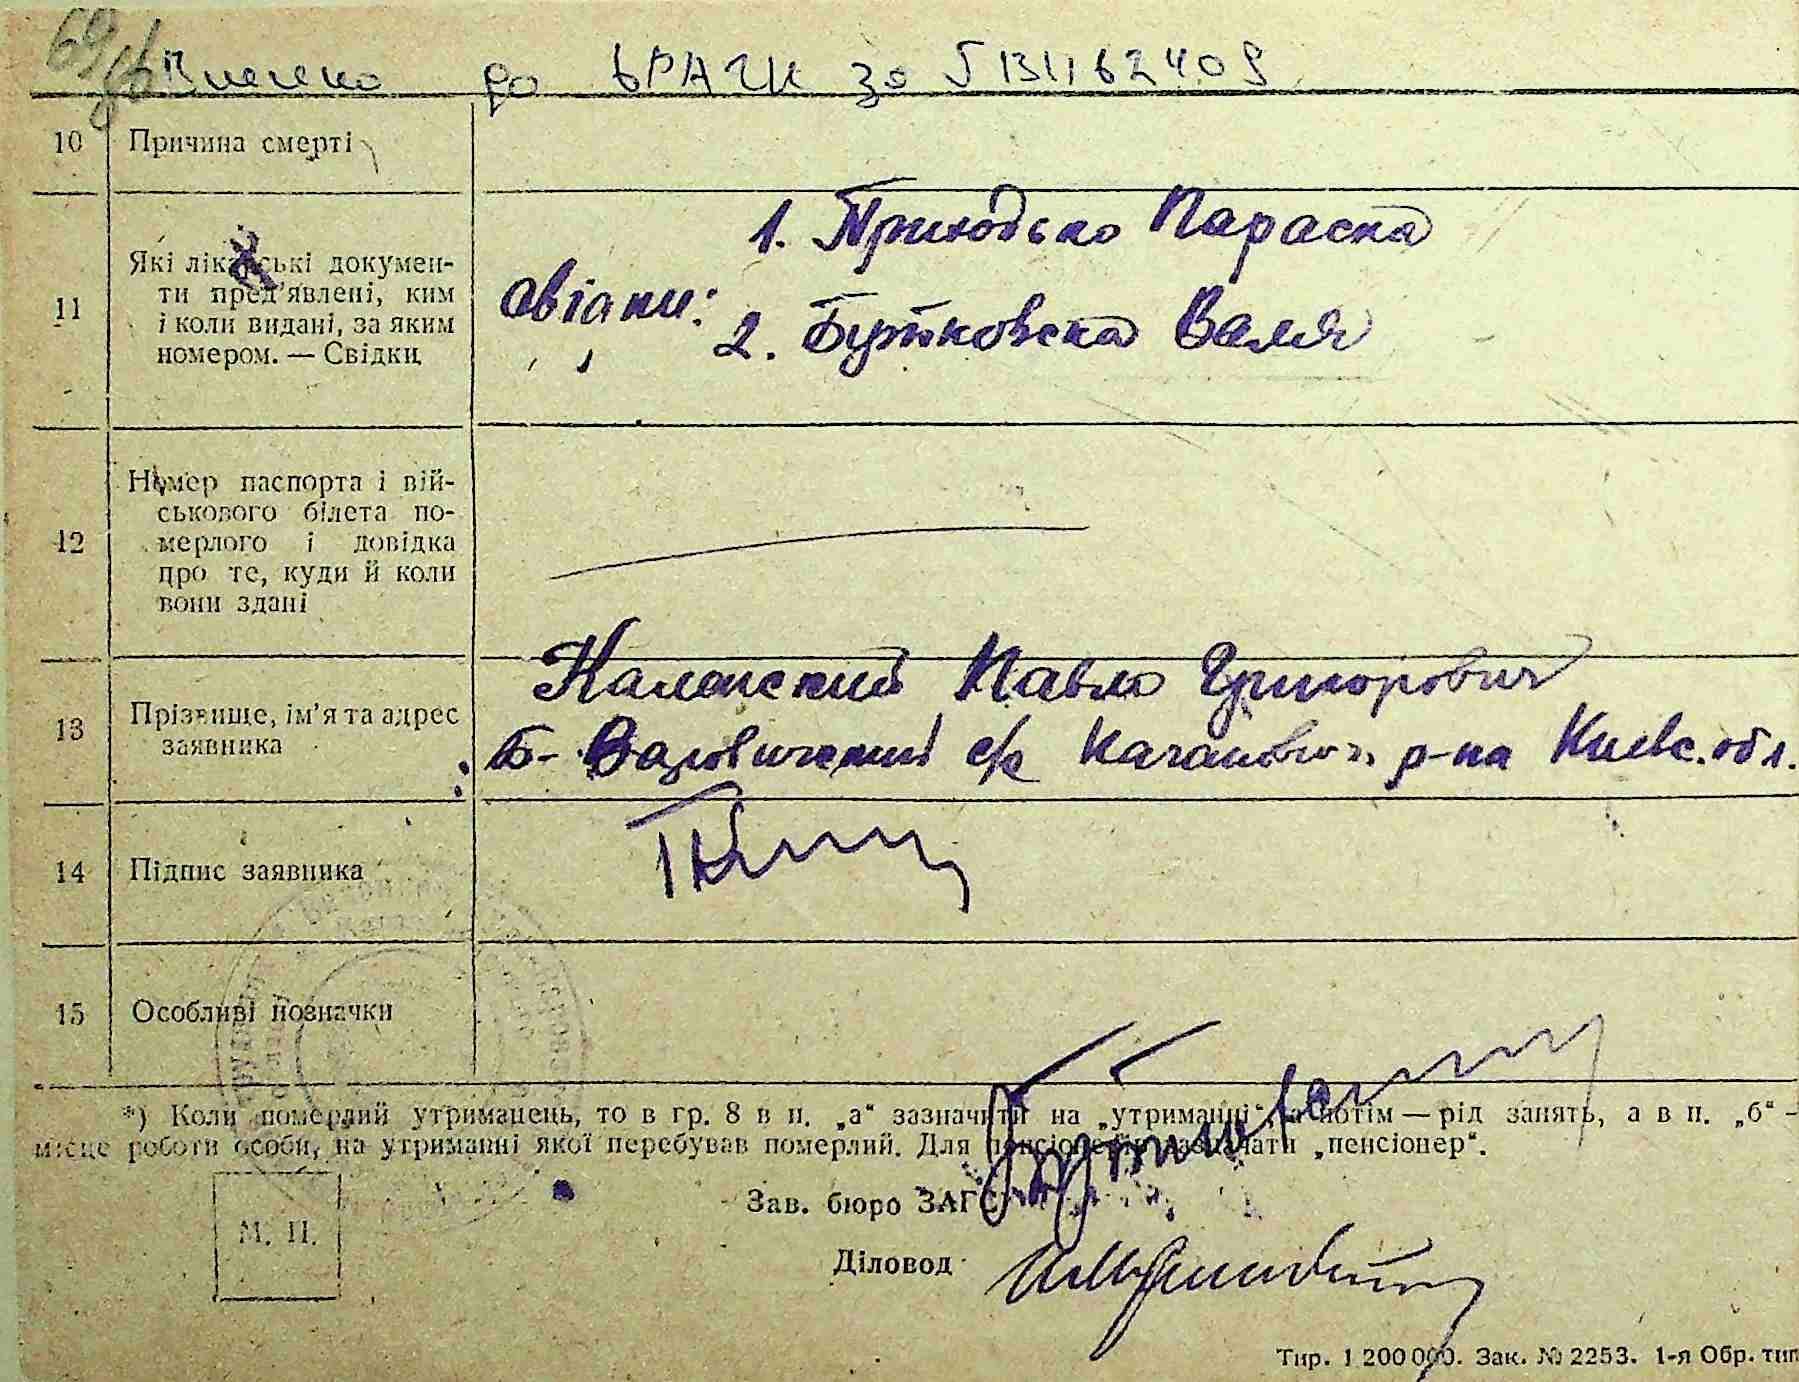 69
Внесено до ДРАЦГК за №
10 Причина смерті
11 Які лікарські документи пред'явлені, ким і коли видані, за яким номером. — Свідки
1. Приходько Параска
свідки:
2. Бутковска Валя
12 Номер паспорта і військового білета померлого і довідка про те, куди й коли вони здані
13 Прізвище, ім'я та адрес заявника
Каленский Павло Григорович
Б- с/с р-на Киевс. обл.
14 Підпис заявника
15 Особливі позначки
*) Коли померлий утриманець, то в гр. 8 в п. „а“ зазначити на „утриманні“, а потім — рід занять, а в п. „б“ -
місце роботи особи, на утриманні якої перебував померлий. Для пенсіонерів зазначати „пенсіонер“.
Зав. бюро ЗАГС
М. П.
Діловод
Тир. 1 200 000. Зак. № 2253. 1-я Обр. тип